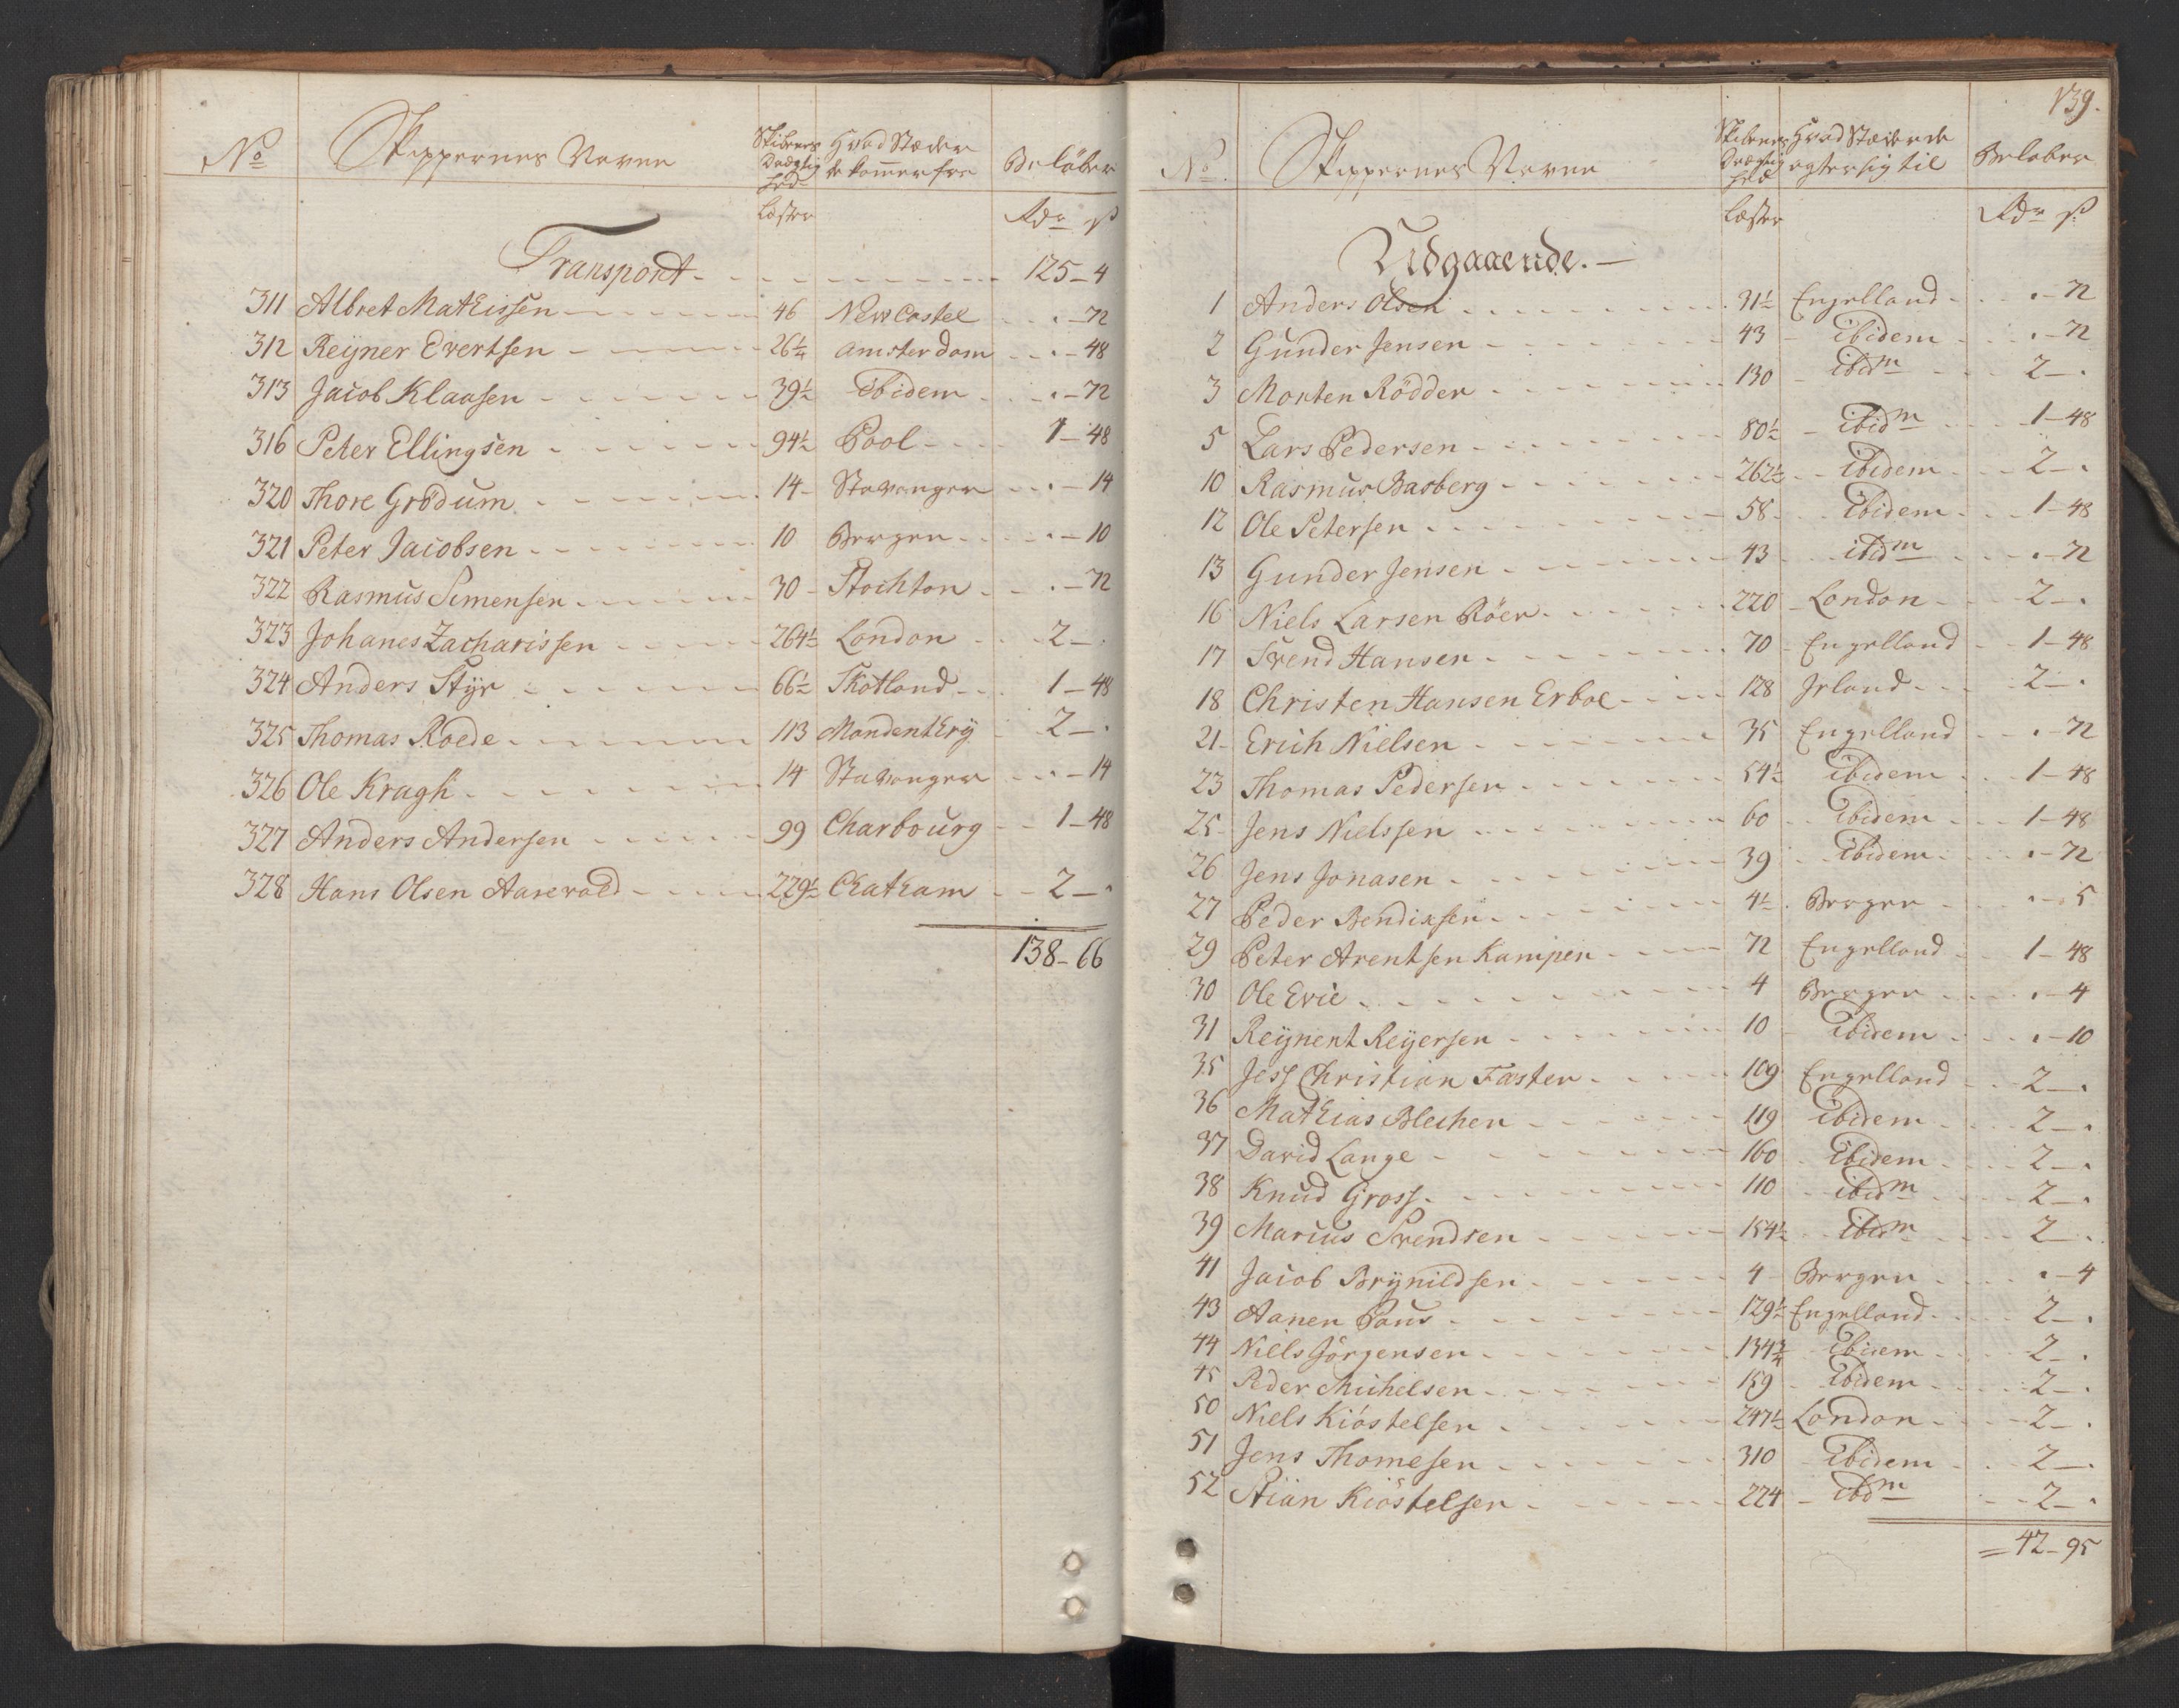 No Skippernes Navne Skibenes Drægtighed Hvad Stæder de kommer fra Beløber
Læster Rdr ß
Transport 125-4
311 Albret Mathissen 46 New Castel .-72
312 Reÿner Evertsen 26¼ Amsterdam .-48
313 Jacob Klaasen 39½ Ibidem .-72
316 Peter Ellingsen 94½ Pool 1-48
320 Thore Grödum 14 Stavanger .-14
321 Peter Jacobsen 10 Bergen .-10
322 Rasmus Simensen 30 Stockton .-72
323 Johanes Zacharissen 264½ London 2-.
324 Anders Stÿr 66½ Skotland 1-48
325 Thomas Roede 113 Mondenthrÿ 2-.
326 Ole Kragh 14 Stavanger .-14
327 Anders Andersen 99 Charbourg 1-48
328 Hans Olsen Aarevold 229½ Chatham 2-.
138-66
139.
No. Skippernes Navne Skibenes Drægtighed Hvad Stæder de agter sig til Beløber
Læster Rdr ß
Udgaaende.
1 Anders Olsen 31½ Engelland .-72
2 Gunder Jensen 43 Ibidem .-72
3 Morten Rödder 130 ibidm 2-.
5 Lars Pedersen 80½ ibidm 1-48
10 Rasmus Basberg 262½ Ibidem 2-.
12 Ole Petersen 58 Ibidem 1-48
13 Gunder Jensen 43 ibidm .-72
16 Niels Larsen Röer 220 London 2-.
17 Svend Hansen 70 Engelland 1-48
18 Christen Hansen Erboe 128 Irland 2-.
21 Erich Nielsen 35 Engelland .-72
23 Thomas Pedersen 54½ Ibidem 1-48
25 Jens Nielssen 60 Ibidem 1-48
26 Jens Jonasen 39 Ibidem .-72
27 Peder Bendixsen 4½ Bergen .-5
29 Peter Arentsen Kampen 72 Engelland 1-48
30 Ole Evie 4 Bergen .-4
31 Reÿnert Reÿersen 10 Ibidem .-10
35 Jess Christian Faster 109 Engelland 2-.
36 Mathias Blechen 119 Ibidem 2-.
37 David Lange 160 Ibidem 2-.
38 Knud Gross 110 ibidm 2-.
39 Marius Svendsen 154½ ibidm 2-.
41 Jacob Brÿnildsen 4 Bergen .-4
43 Aanen Paus 129½ Engelland 2-.
44 Niels Jörgensen 134¾ Ibidem 2-.
45 Peder Michelsen 159 Ibidem 2-.
50 Niels Kiöstelsen 247½ London 2-.
51 Jens Thomesen 310 Ibidem 2-.
52 Stian Kiöstelsen 224 ibdm 2-.
= 42-95